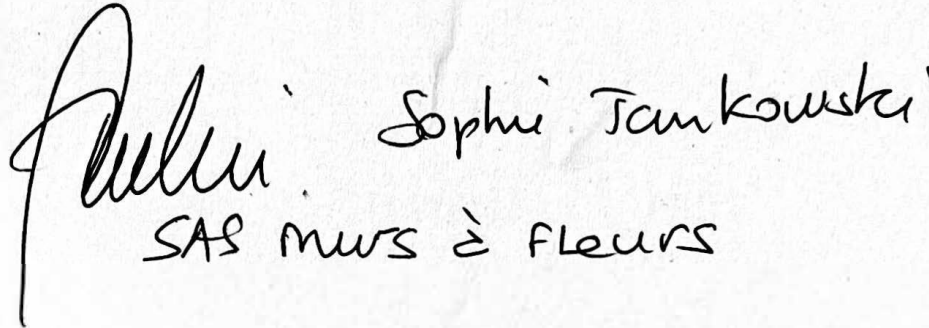 Sophie Jankowski
SAS murs à Fleurs